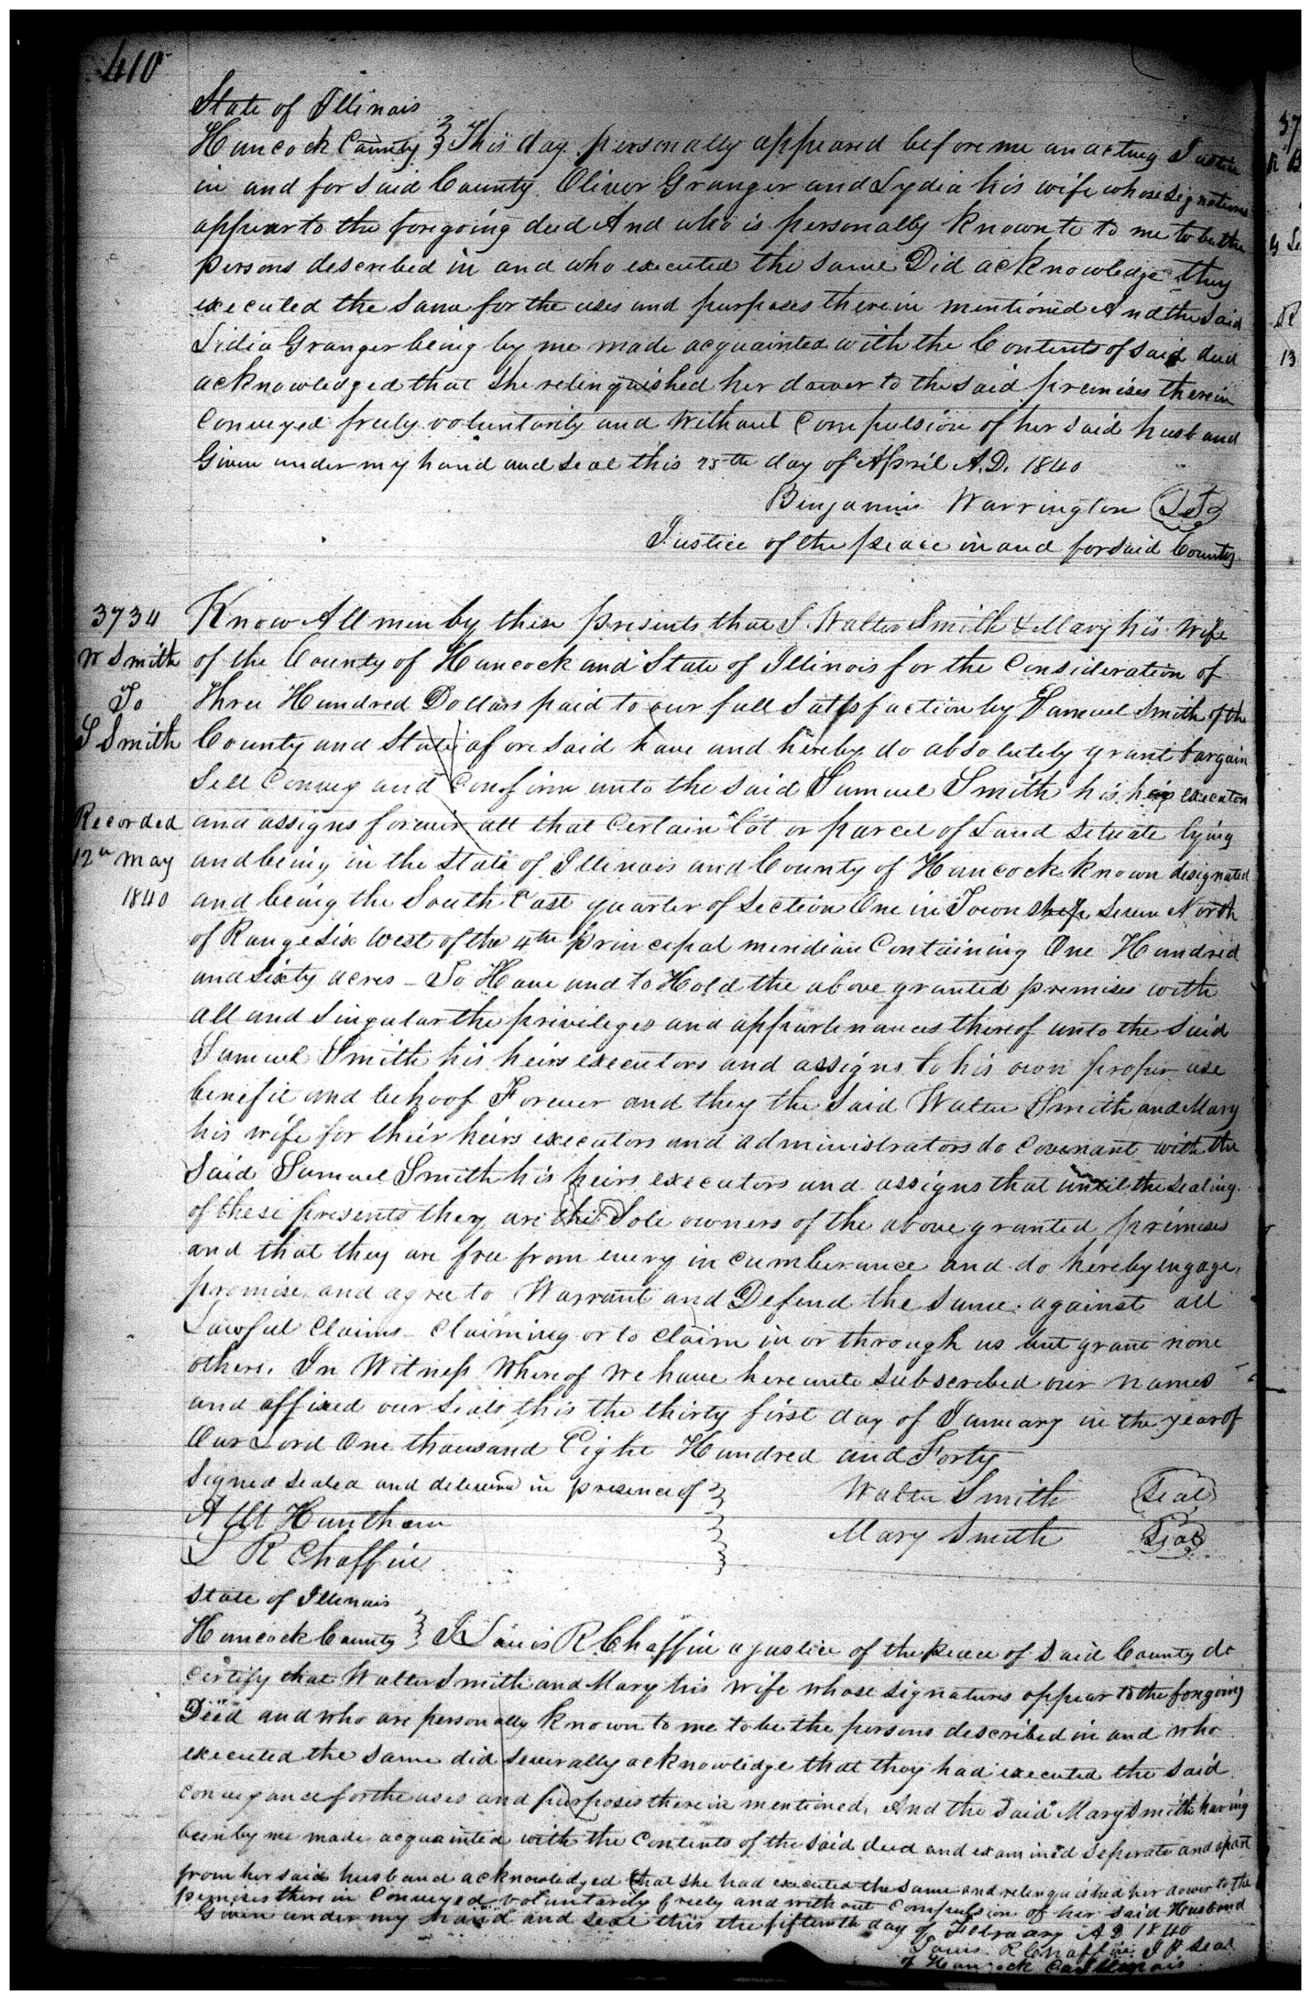 410
State of Illinois
Hancock County } This day personally appeared before me an acting Justice
in and for said County Oliver Granger and Lydia his wife whose signatures
appear to the foregoing deed And who is personally known to to me to be the
persons described in and who executed the same Did acknowledge they
executed the same for the uses and purposes therein mentioned And the said
Lidia Granger being by me made acquainted with the Contents of said deed
acknowledged that she relinquished her dower to the said premises therein
Conveyed freely voluntarily and without Compulsion of her said husband
Given under my hand and seal this 25th day of April A.D. 1840
Benjamin Warrington
Justice of the peace in and for said County
3734
W Smith
To
S Smith
Recorded
12th May
1840
Know All men by these presents that I Walter Smith & Mary his wife
of the County of Hancock and State of Illinois for the Consideration of
three Hundred Dollars paid to our full Satisfaction by Samuel Smith of the
County and State aforesaid have and hereby do absolutely grant bargain
Sell Convey and Confirm unto the said Samuel Smith his executors
and assigns forever all that Certain lot or parcel of Land Situate lying
and being in the State of Illinois and County of Hancock known designated
and being the South East quarter of Section One in Township Seven North
of Range Six West of the 4th principal meridian Containing One Hundred
and Sixty acres - To Have and to Hold the above granted premises with
all and Singular the privileges and appurtenances thereof unto the said
Samuel Smith his heirs executors and assigns to his own proper use
benefit and behoof Forever and they the said Walter Smith and Mary
his wife for their heirs executors and administrators do Covenant with the
Said Samuel Smith his heirs executors and assigns that until the sealing
of these presents they are the Sole owners of the above granted primises
and that they are free from every incumberance and do hereby engage
promise and agree to Warrant and Defend the Same against all
Lawful Claims Claiming or to Claim in or through us but grant none
others. In Witness Whereof we have hereunto subscribed our names
and affixed our Seals this the thirty first day of January in the year of
Our Lord One thousand Eight Hundred and Forty
Signed Sealed and delivered in presence of } Walter Smith Seal
Mary Smith Seal
R Chaffin
State of Illinois
Hancock County } I R Chaffin a justice of the peace of Said County do
Certify that Walter Smith and Mary his wife whose signatures appear to the forgoing
Deed and who are personally known to me to be the persons described in and who
executed the same did severally acknowledge that they had executed the said
Conveyance for the uses and purposes therein mentioned. And the said Mary Smith having
been by me made acquainted with the Contents of the said deed and examined seperate and apart
from her said husband acknowledged that she had executed the same and relinquished her dower to the
premises therein Conveyed voluntarily freely and without Compulsion of her said Husband
Given under my hand and seal this the fifteenth day of February A D 1840
R Chaffin J P Seal
of Hancock Co Illinois